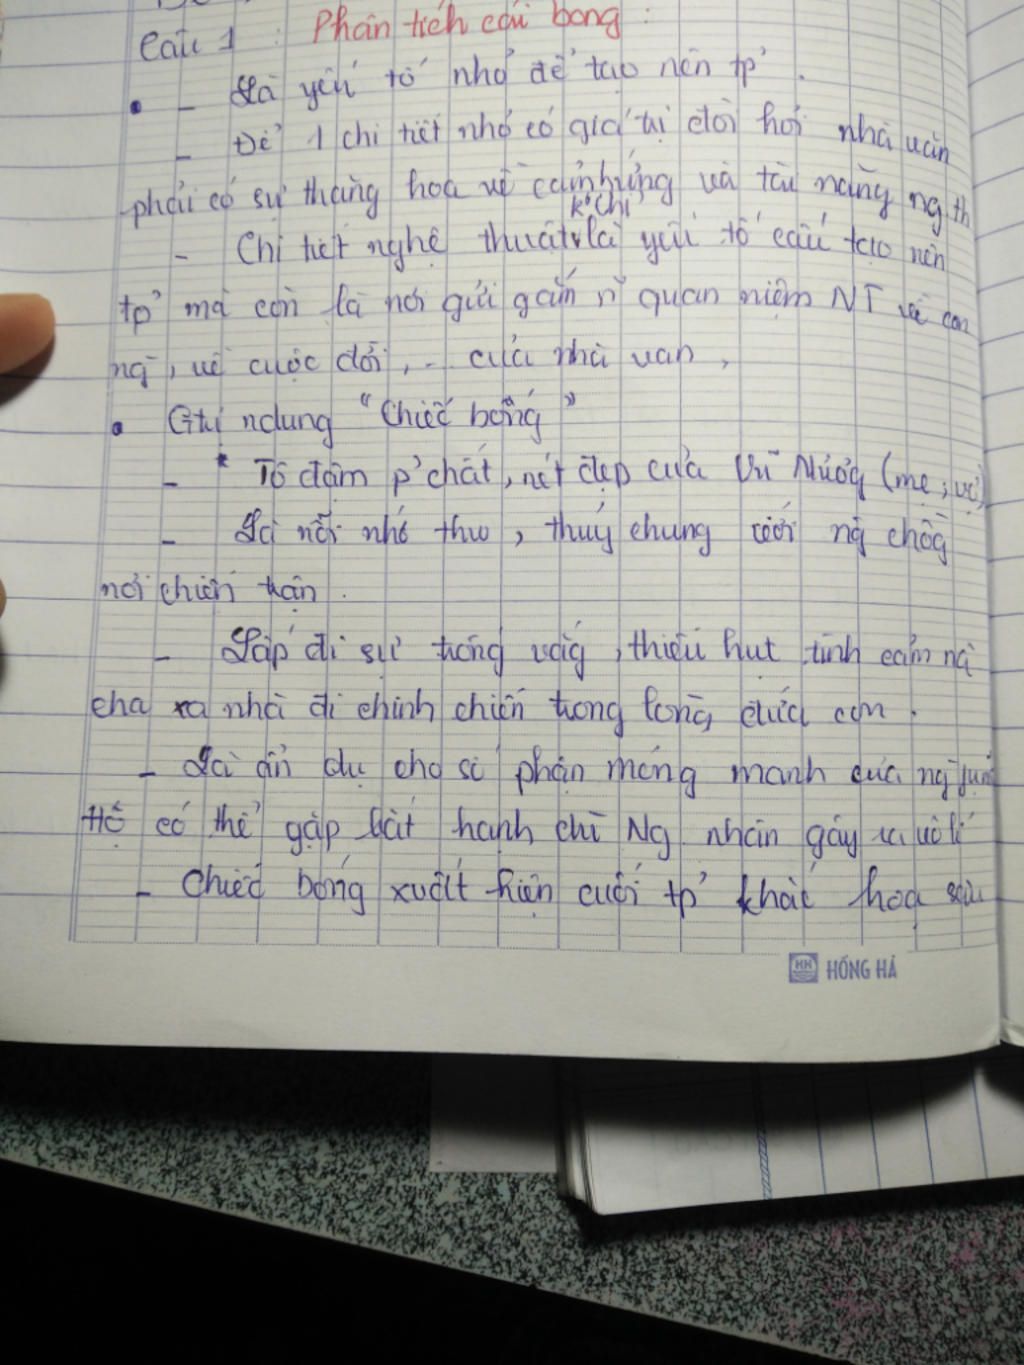 Câu 1 : Phân tích cái bóng :
- Là yếu tố nhỏ để tạo nên tp'.
- Để 1 chi tiết nhỏ có giá trị đòi hỏi nhà văn
phải có sự thăng hoa về cảm hứng và tài năng ng th
- Chi tiết nghệ thuật k' chỉ là yếu tố cấu tạo nên
tp' mà còn là nơi gửi gắm n~ quan niệm NT về con
ng', về cuộc đời, ... của nhà văn,
Gtrị ndung "Chiếc bóng"
- Tô đậm p'chất, nét đẹp của Vũ Nương (mẹ, vợ)
- Là nỗi nhớ thư, thủy chung với ng chồng
nơi chiến trận.
- Lấp đi sự trống vắng, thiếu hụt tình cảm ng
cha xa nhà đi chinh chiến trong lòng đứa con.
- Là ẩn dụ cho số phận mỏng manh của ng
Họ có thể gặp bất hạnh chỉ Ng nhân gây ra vô lí
- Chiếc bóng xuất hiện cuối tp' khắc hoạ sâu
HỒNG HÀ